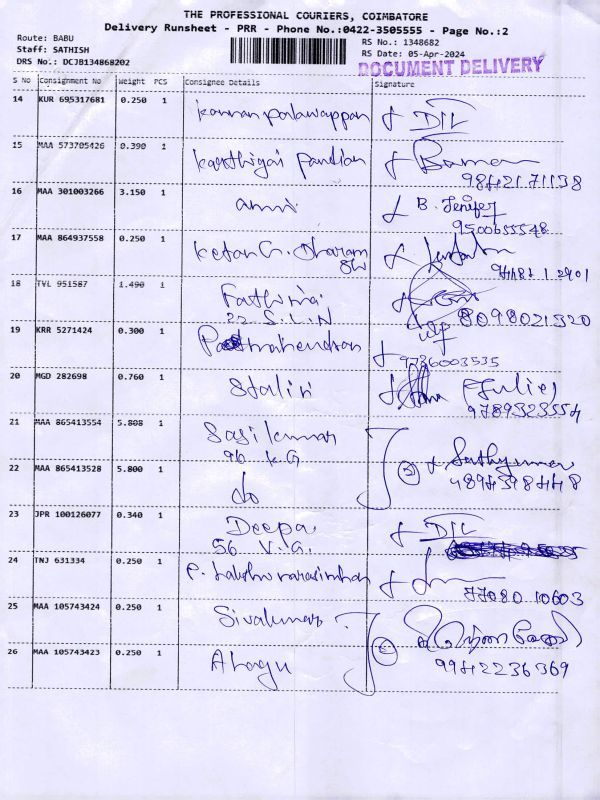 THE PROFESSIONAL COURIERS, COIMBATORE
Delivery Runsheet - PRR - Phone No.:0422-3505555 - Page No.:2
Route: BABU
RS No.: 1348682
Staff: SATHISH
RS Date: 05-Apr-2024
DRS No.: DCJB134868202
DOCUMENT DELIVERY
S No Consignment No Weight PCS Consignee Details Signature
14 KUR 695317681 0.250 1 DIL
15 MAA 573705426 0.390 1 Karthigai Pandian
9842171138
16 MAA 301003266 3.150 1 B. Jenifer
9500655548
17 MAA 864937558 0.250 1 Ketan G. Dharam
18 TVL 951587 1.490 1 Fathima
22 S.L.N 8098021320
19 KRR 5271424 0.300 1
9736003535
20 MGD 282698 0.760 1 Stalin (Julie)
9789323554
21 MAA 865413554 5.808 1 Sasikumar
96 K.G
22 MAA 865413528 5.800 1 do
23 JPR 100126077 0.340 1 Deepa DIL
56 V.G.
24 TNJ 631334 0.250 1 P. Lakshminarasimhan
77080 10603
25 MAA 105743424 0.250 1 Sivakumar
26 MAA 105743423 0.250 1 Alagu
9942236369